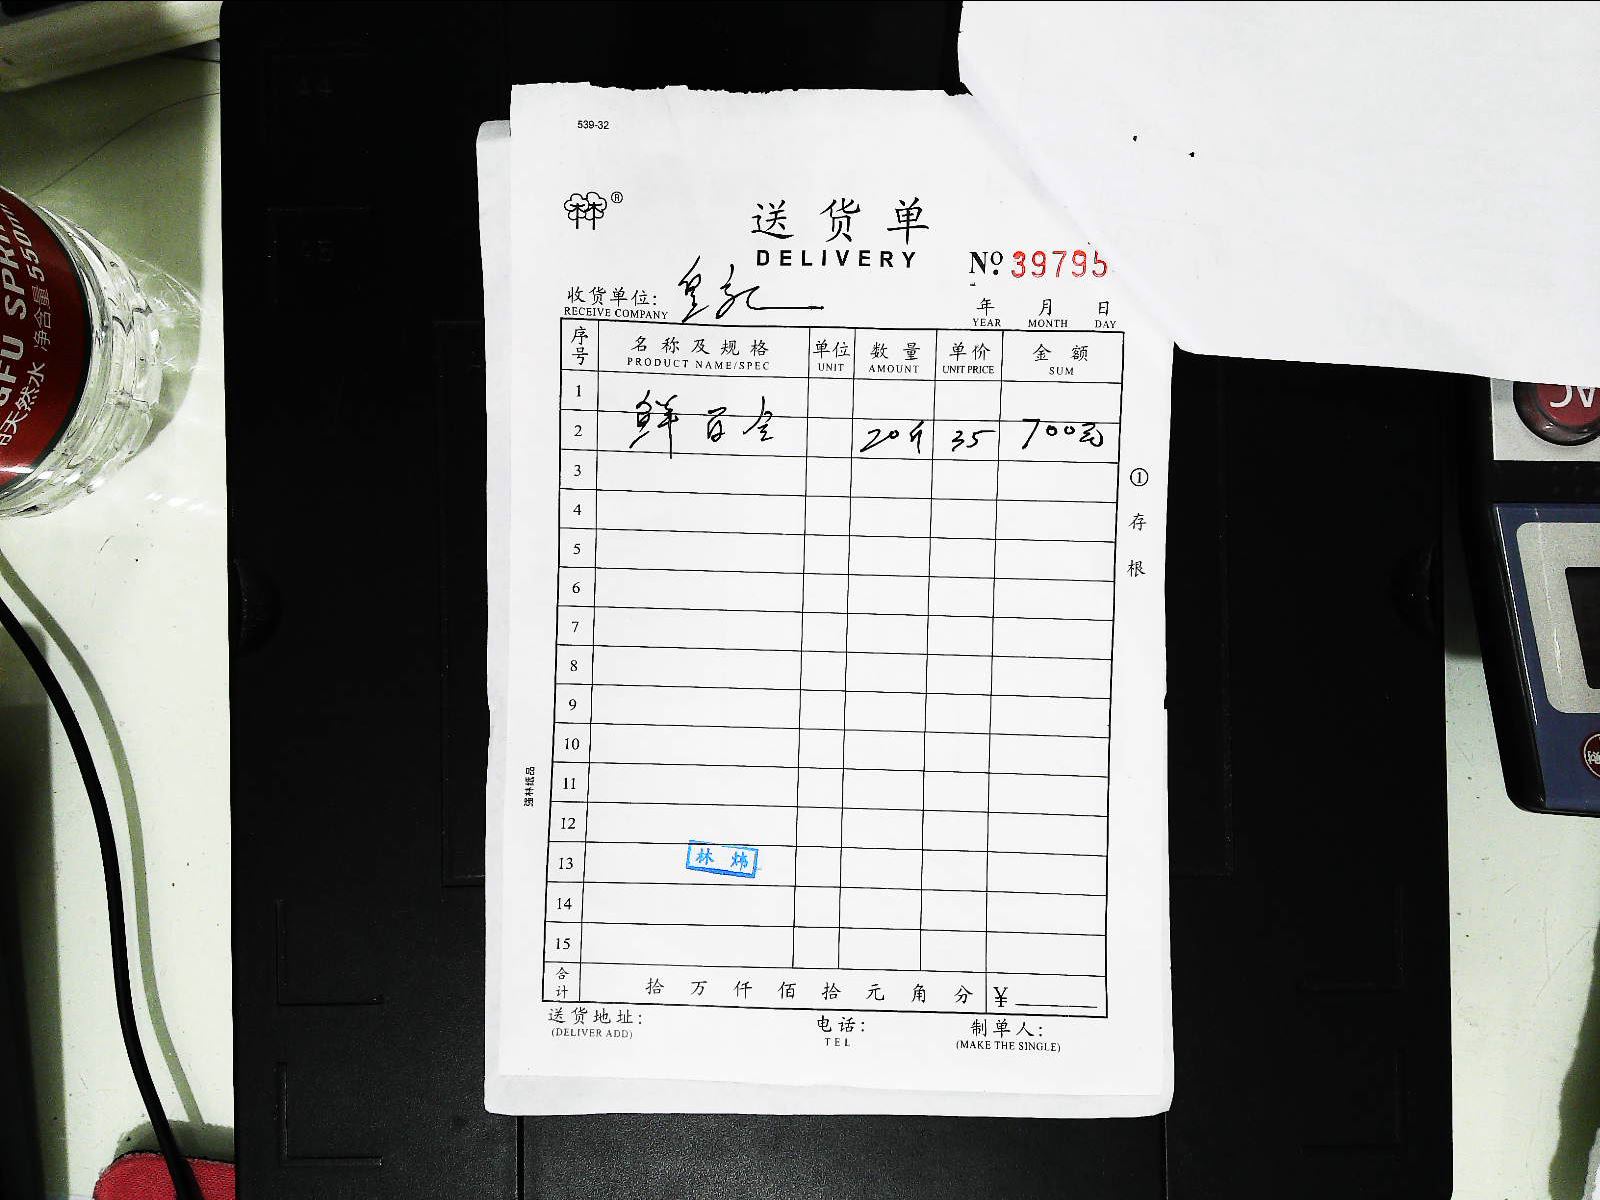 539-32
林林®
送货单
DELIVERY
№ 39795
收货单位: 皇记
RECEIVE COMPANY
年 月 日
YEAR MONTH DAY
序号 名称及规格 单位 数量 单价 金额
PRODUCT NAME/SPEC UNIT AMOUNT UNIT PRICE SUM
1
2 鲜百合 20斤 35 700元
3
4
5
6
7
8
9
10
11
12
13 林炜
14
15
合计 拾 万 仟 佰 拾 元 角 分 ¥
送货地址: 电话: 制单人:
(DELIVER ADD) TEL (MAKE THE SINGLE)
①存根
强林纸品
净含量550ml
天然水